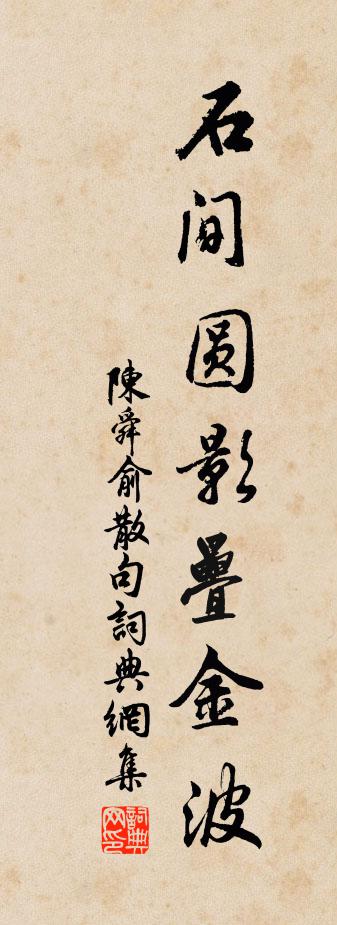 石間圓影疊金波
陳舜俞散句詞典網集
詞典网印